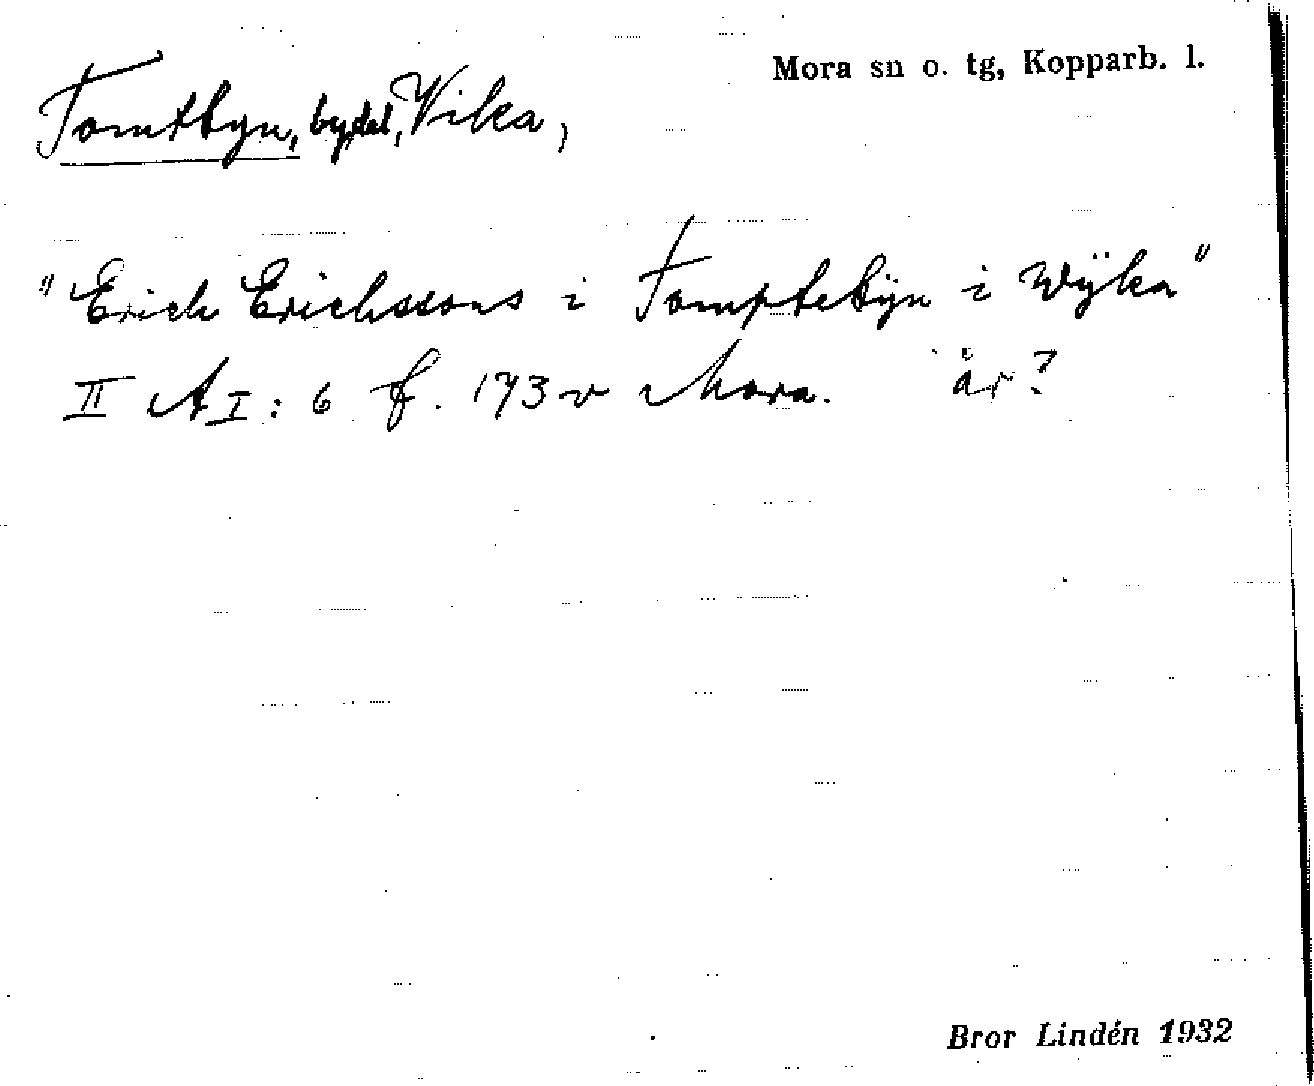 Mora sn o. tg, Kopparb. l.
Tomtbyn, bydel, Vika,
"Erich Erichssons i Tomptebÿn i Wÿka"
II AI: 6 f. 173 v Mora. år?
Bror Lindén 1932